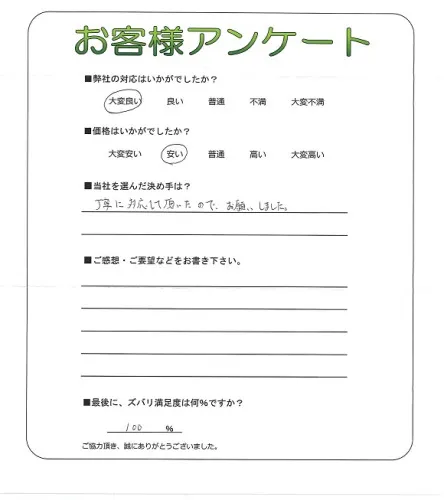 お客様アンケート
■弊社の対応はいかがでしたか？
大変良い 良い 普通 不満 大変不満
■価格はいかがでしたか？
大変安い 安い 普通 高い 大変高い
■当社を選んだ決め手は？
丁寧に対応して頂いたので、お願いしました。
■ご感想・ご要望などをお書き下さい。
■最後に、ズバリ満足度は何%ですか？
100 %
ご協力頂き、誠にありがとうございました。